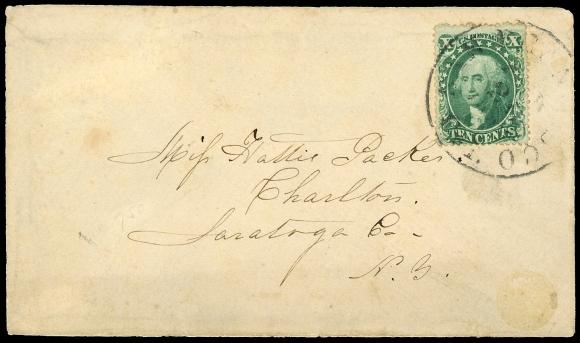 X U.S. POSTAGE X
TEN CENTS
Miss Hattie Packer.
Charlton.
Saratoga Co-
N.Y.